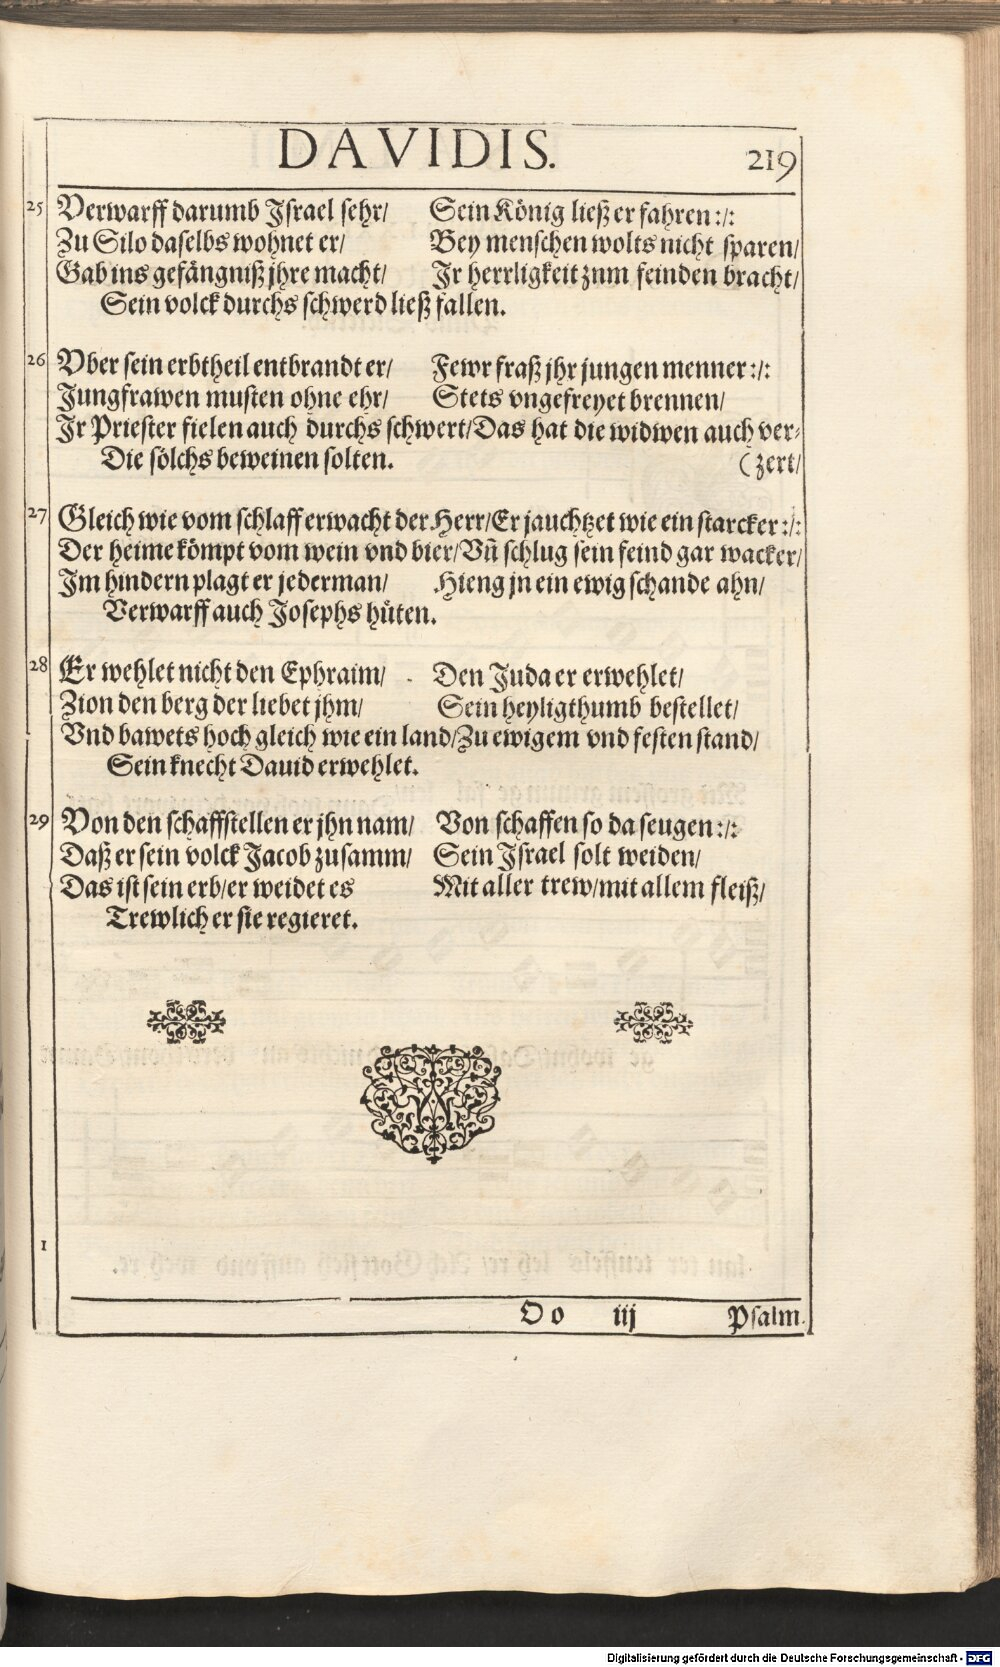 DAVIDIS. 219
25 Verwarff darumb Israel sehr/ Sein König ließ er fahren:/:
Zu Silo daselbs wohnet er/ Bey menschen wolts nicht sparen/
Gab ins gefängniß jhre macht/ Ir herrligkeit znm feinden bracht/
Sein volck durchs schwerd ließ fallen.
26 Vber sein erbtheil entbrandt er/ Fewr fraß jhr jungen menner:/:
Jungfrawen musten ohne ehr/ Stets vngefreyet brennen/
Ir Priester fielen auch durchs schwert/Das hat die widwen auch ver-
Die sölchs beweinen solten. (zert/
27 Gleich wie vom schlaff erwacht der Herr/Er jauchtzet wie ein starcker:/:
Der heime kömpt vom wein vnd bier/Vñ schlug sein feind gar wacker/
Im hindern plagt er jederman/ Hieng jn ein ewig schande ahn/
Verwarff auch Josephs hüten.
28 Er wehlet nicht den Ephraim/ Den Juda er erwehlet/
Zion den berg der liebet jhm/ Sein heyligthumb bestellet/
Vnd bawets hoch gleich wie ein land/Zu ewigem vnd festen stand/
Sein knecht Dauid erwehlet.
29 Von den schaffstellen er jhn nam/ Von schaffen so da seugen:/:
Daß er sein volck Jacob zusamm/ Sein Israel solt weiden/
Das ist sein erb/er weidet es Mit aller trew/mit allem fleiß/
Trewlich er sie regieret.
1
Oo iij Psalm.
Digitalisierung gefördert durch die Deutsche Forschungsgemeinschaft - DFG